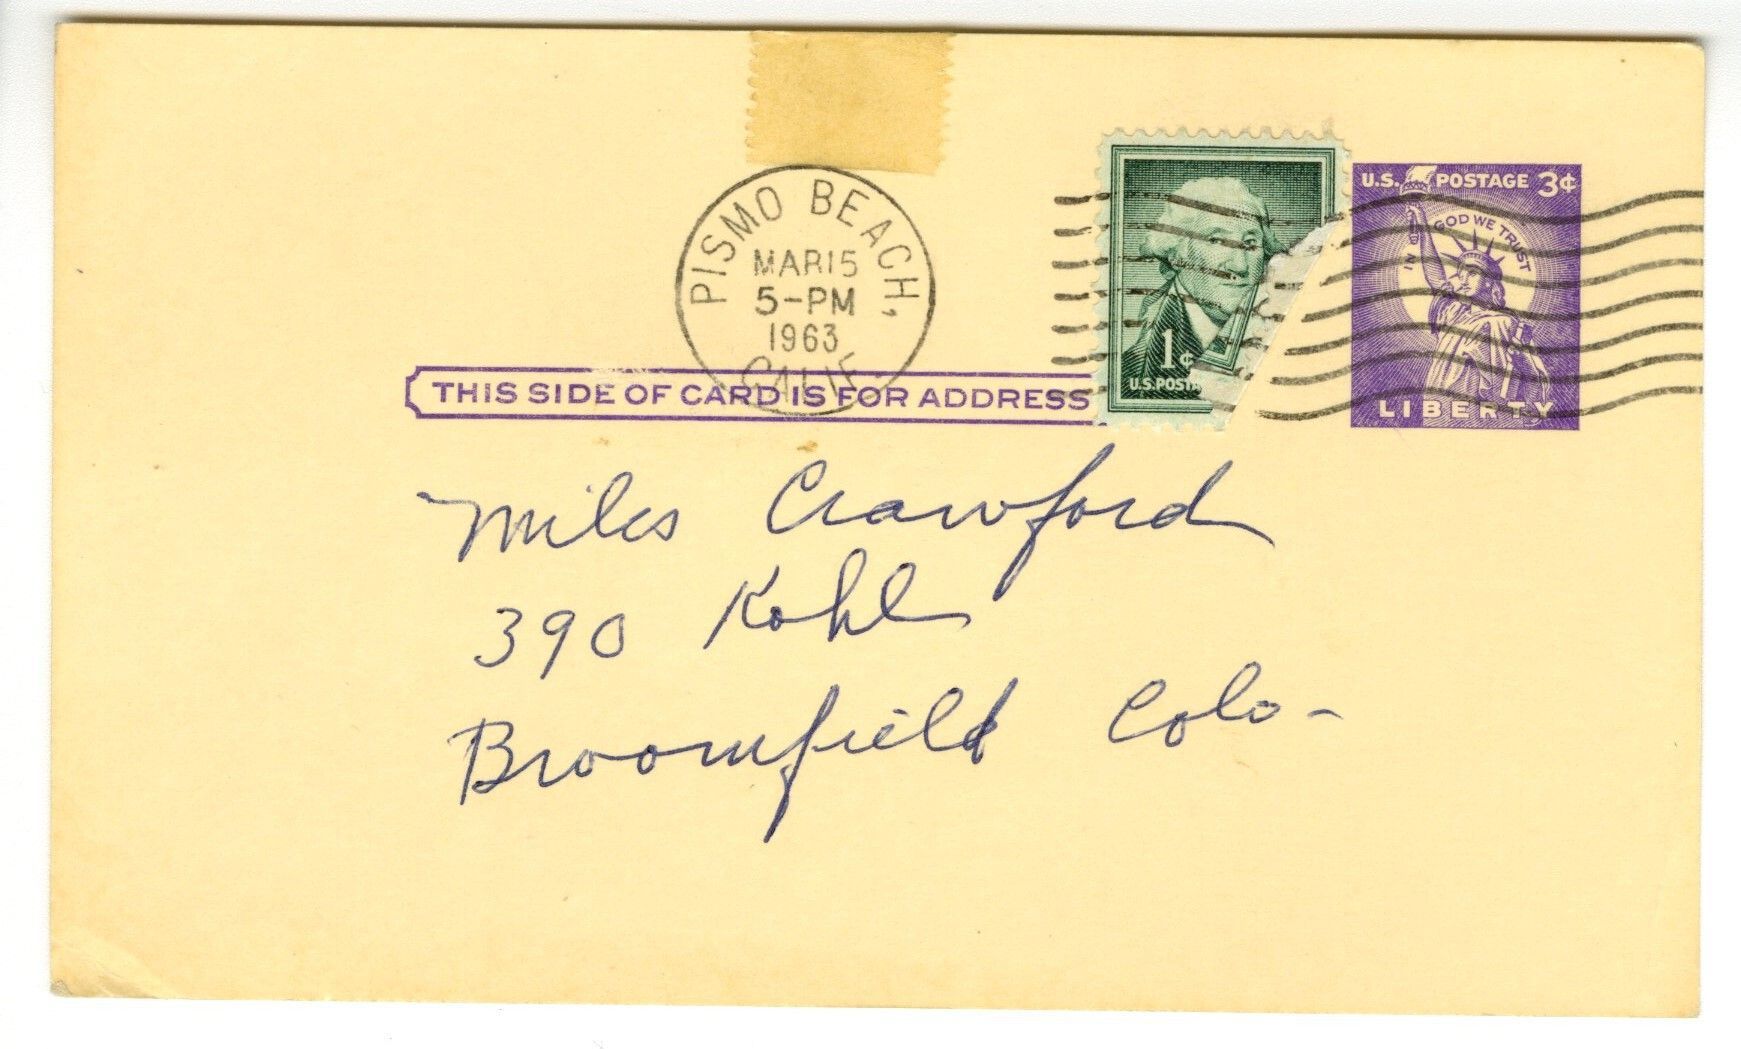 PISMO BEACH,
MAR 15
5-PM
1963
CALIF.
1¢
U.S. POSTA
U.S. POSTAGE 3¢
IN GOD WE TRUST
LIBERTY
THIS SIDE OF CARD IS FOR ADDRESS
Miles Crawford
390 Kohl
Broomfield Colo-